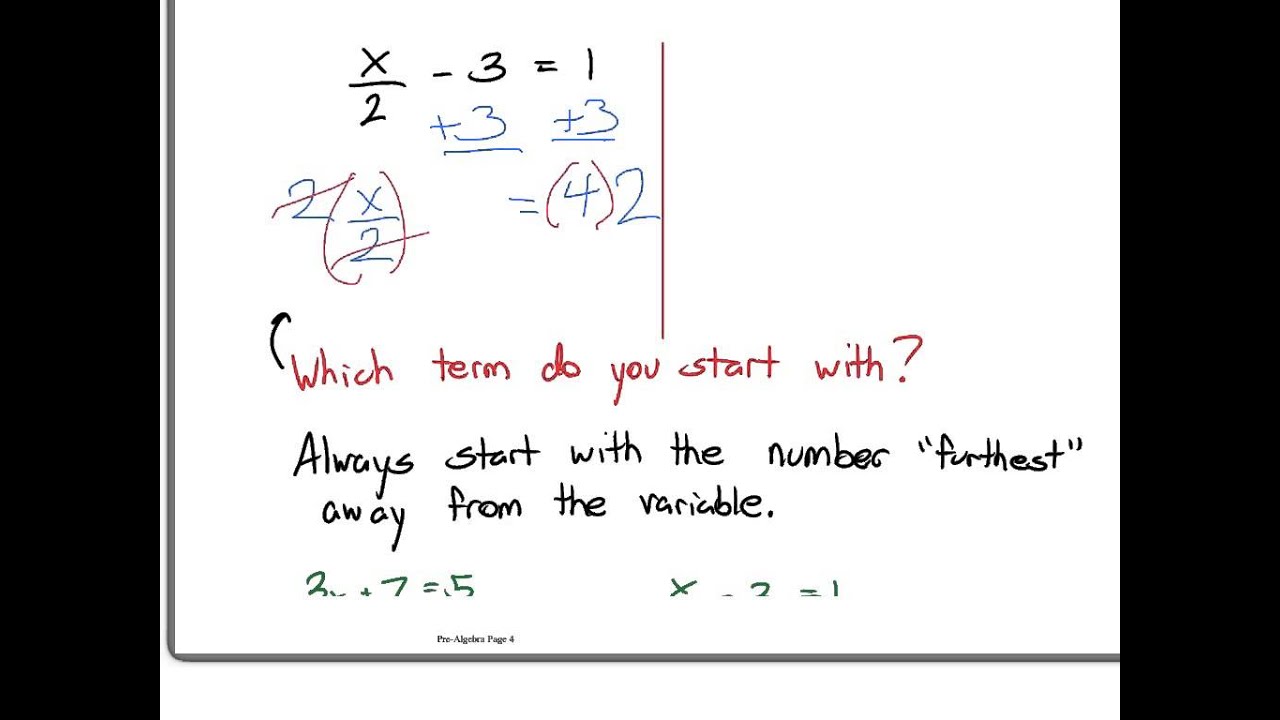 x/2 - 3 = 1
+3 +3
2(x/2) = (4)2
Which term do you start with?
Always start with the number "furthest"
away from the variable.
+ 7 = 5 x - = 1
Pre-Algebra Page 4